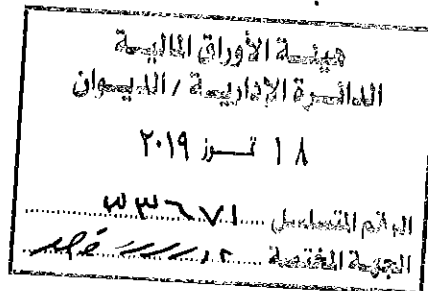 هيئة الأوراق المالية
الدائرة الإدارية / الديوان
١٨ تموز ٢٠١٩
الرقم المتسلسل ٣٣٦٧١
الجهة المختصة